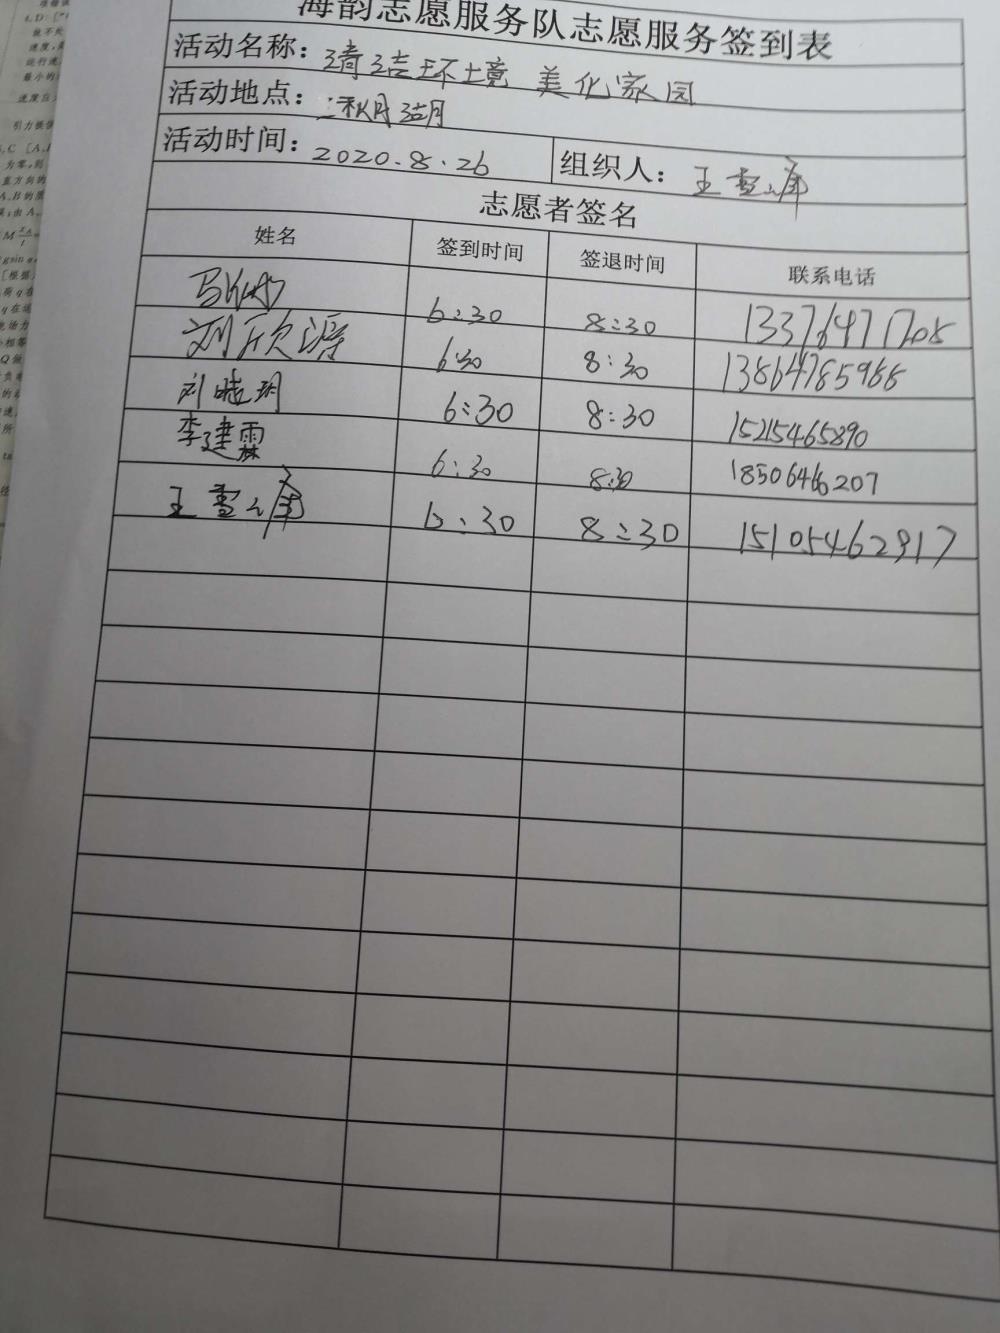 海韵志愿服务队志愿服务签到表
活动名称：清洁环境 美化家园
活动地点：三秋月湖
活动时间：2020.8.26 组织人：王雪峰
志愿者签名
姓名 签到时间 签退时间 联系电话
6:30 8:30
刘欣源 6:30 8:30 13864785988
刘晓玥 6:30 8:30 15215465890
李建霖 6:30 8:30 18506466207
王雪峰 6:30 8:30 15105462917